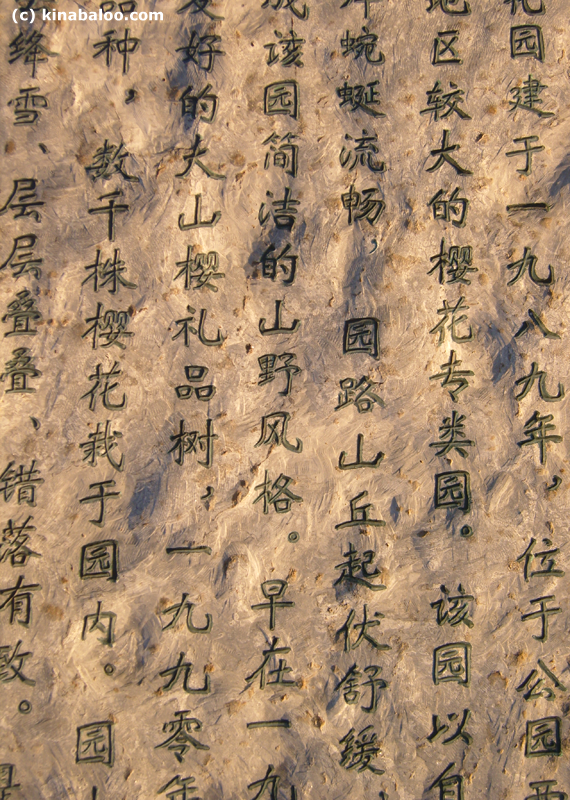 (c) kinabaloo.com
花园建于一九八九年，位于公园西
地区较大的樱花专类园。该园以自
蜿蜒流畅，园路山丘起伏舒缓，
成该园简洁的山野风格。早在一九
友好的大山樱礼品树，一九九零年
品种，数千株樱花栽于园内。园
绛雪、层层叠叠、错落有致。是